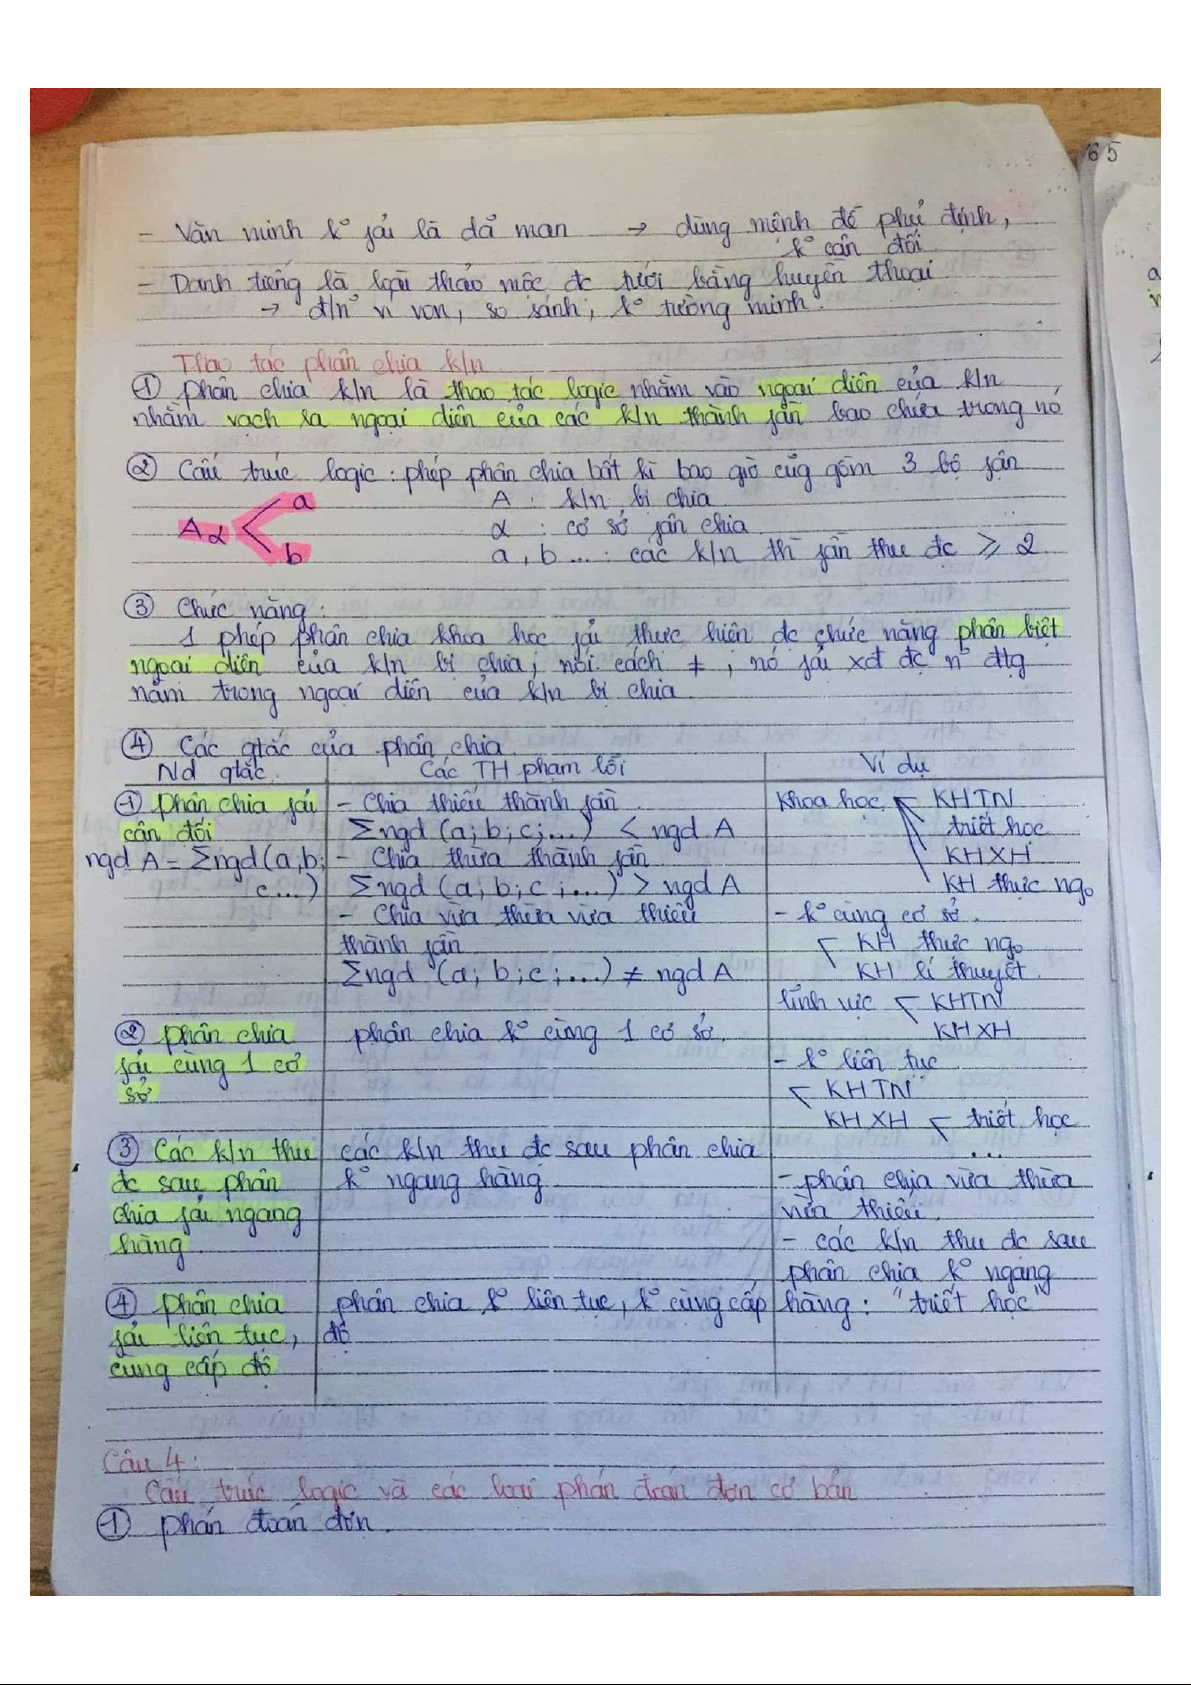 65
- Văn minh ko fải là dã man → dùng mệnh đề phủ định,
ko cân đối
- Danh tiếng là loại thảo mộc đc tưới bằng huyền thoại
→ đ/no ví von, so sánh, ko tường minh.
Thao tác phân chia k/n
① Phân chia k/n là thao tác logic nhằm vào ngoại diên của k/n,
nhằm vạch ra ngoại diên của các k/n thành fần bao chứa trong nó
② Cấu trúc logic: phép phân chia bất kì bao giờ cũg gồm 3 bộ fận
Aα < a
b
A : k/n bị chia
α : cơ sở fân chia
a, b ... : các k/n th fần thu đc ≥ 2
③ Chức năng:
1 phép phân chia khoa học fải thực hiện đc chức năng phân biệt
ngoại diên của k/n bị chia; nói cách ≠, nó fải xđ đc no đtg
nằm trong ngoại diên của k/n bị chia
④ Các qtắc của phân chia
Nd qtắc. Các TH phạm lỗi Ví dụ
① Phân chia fải
cân đối
ngd A = Σngd(a,b,
c...)
- Chia thiếu thành fần
Σngd (a; b; c; ...) < ngd A
- Chia thừa thành fần
Σngd (a; b; c; ...) > ngd A
- Chia vừa thừa vừa thiếu
thành fần
Σngd (a; b; c; ...) ≠ ngd A
Khoa học KHTN
triết học
KHXH
KH thực ngo
- ko cùng cơ sở.
KH thực ngo
KH lí thuyết
lĩnh vực KHTN
KHXH
② Phân chia
fải cùng 1 cơ
sở
phân chia ko cùng 1 cơ sở.
- ko liên tục
KHTN
KHXH triết học
...
③ Các k/n thu
đc sau phân
chia fải ngang
hàng
các k/n thu đc sau phân chia
ko ngang hàng
- phân chia vừa thừa
vừa thiếu.
- các k/n thu đc sau
phân chia ko ngang
hàng: "triết học"
④ Phân chia
fải liên tục,
cùng cấp độ
phân chia ko liên tục, ko cùng cấp
độ
Câu 4:
Cấu trúc logic và các loại phán đoán đơn cơ bản
① Phán đoán đơn.